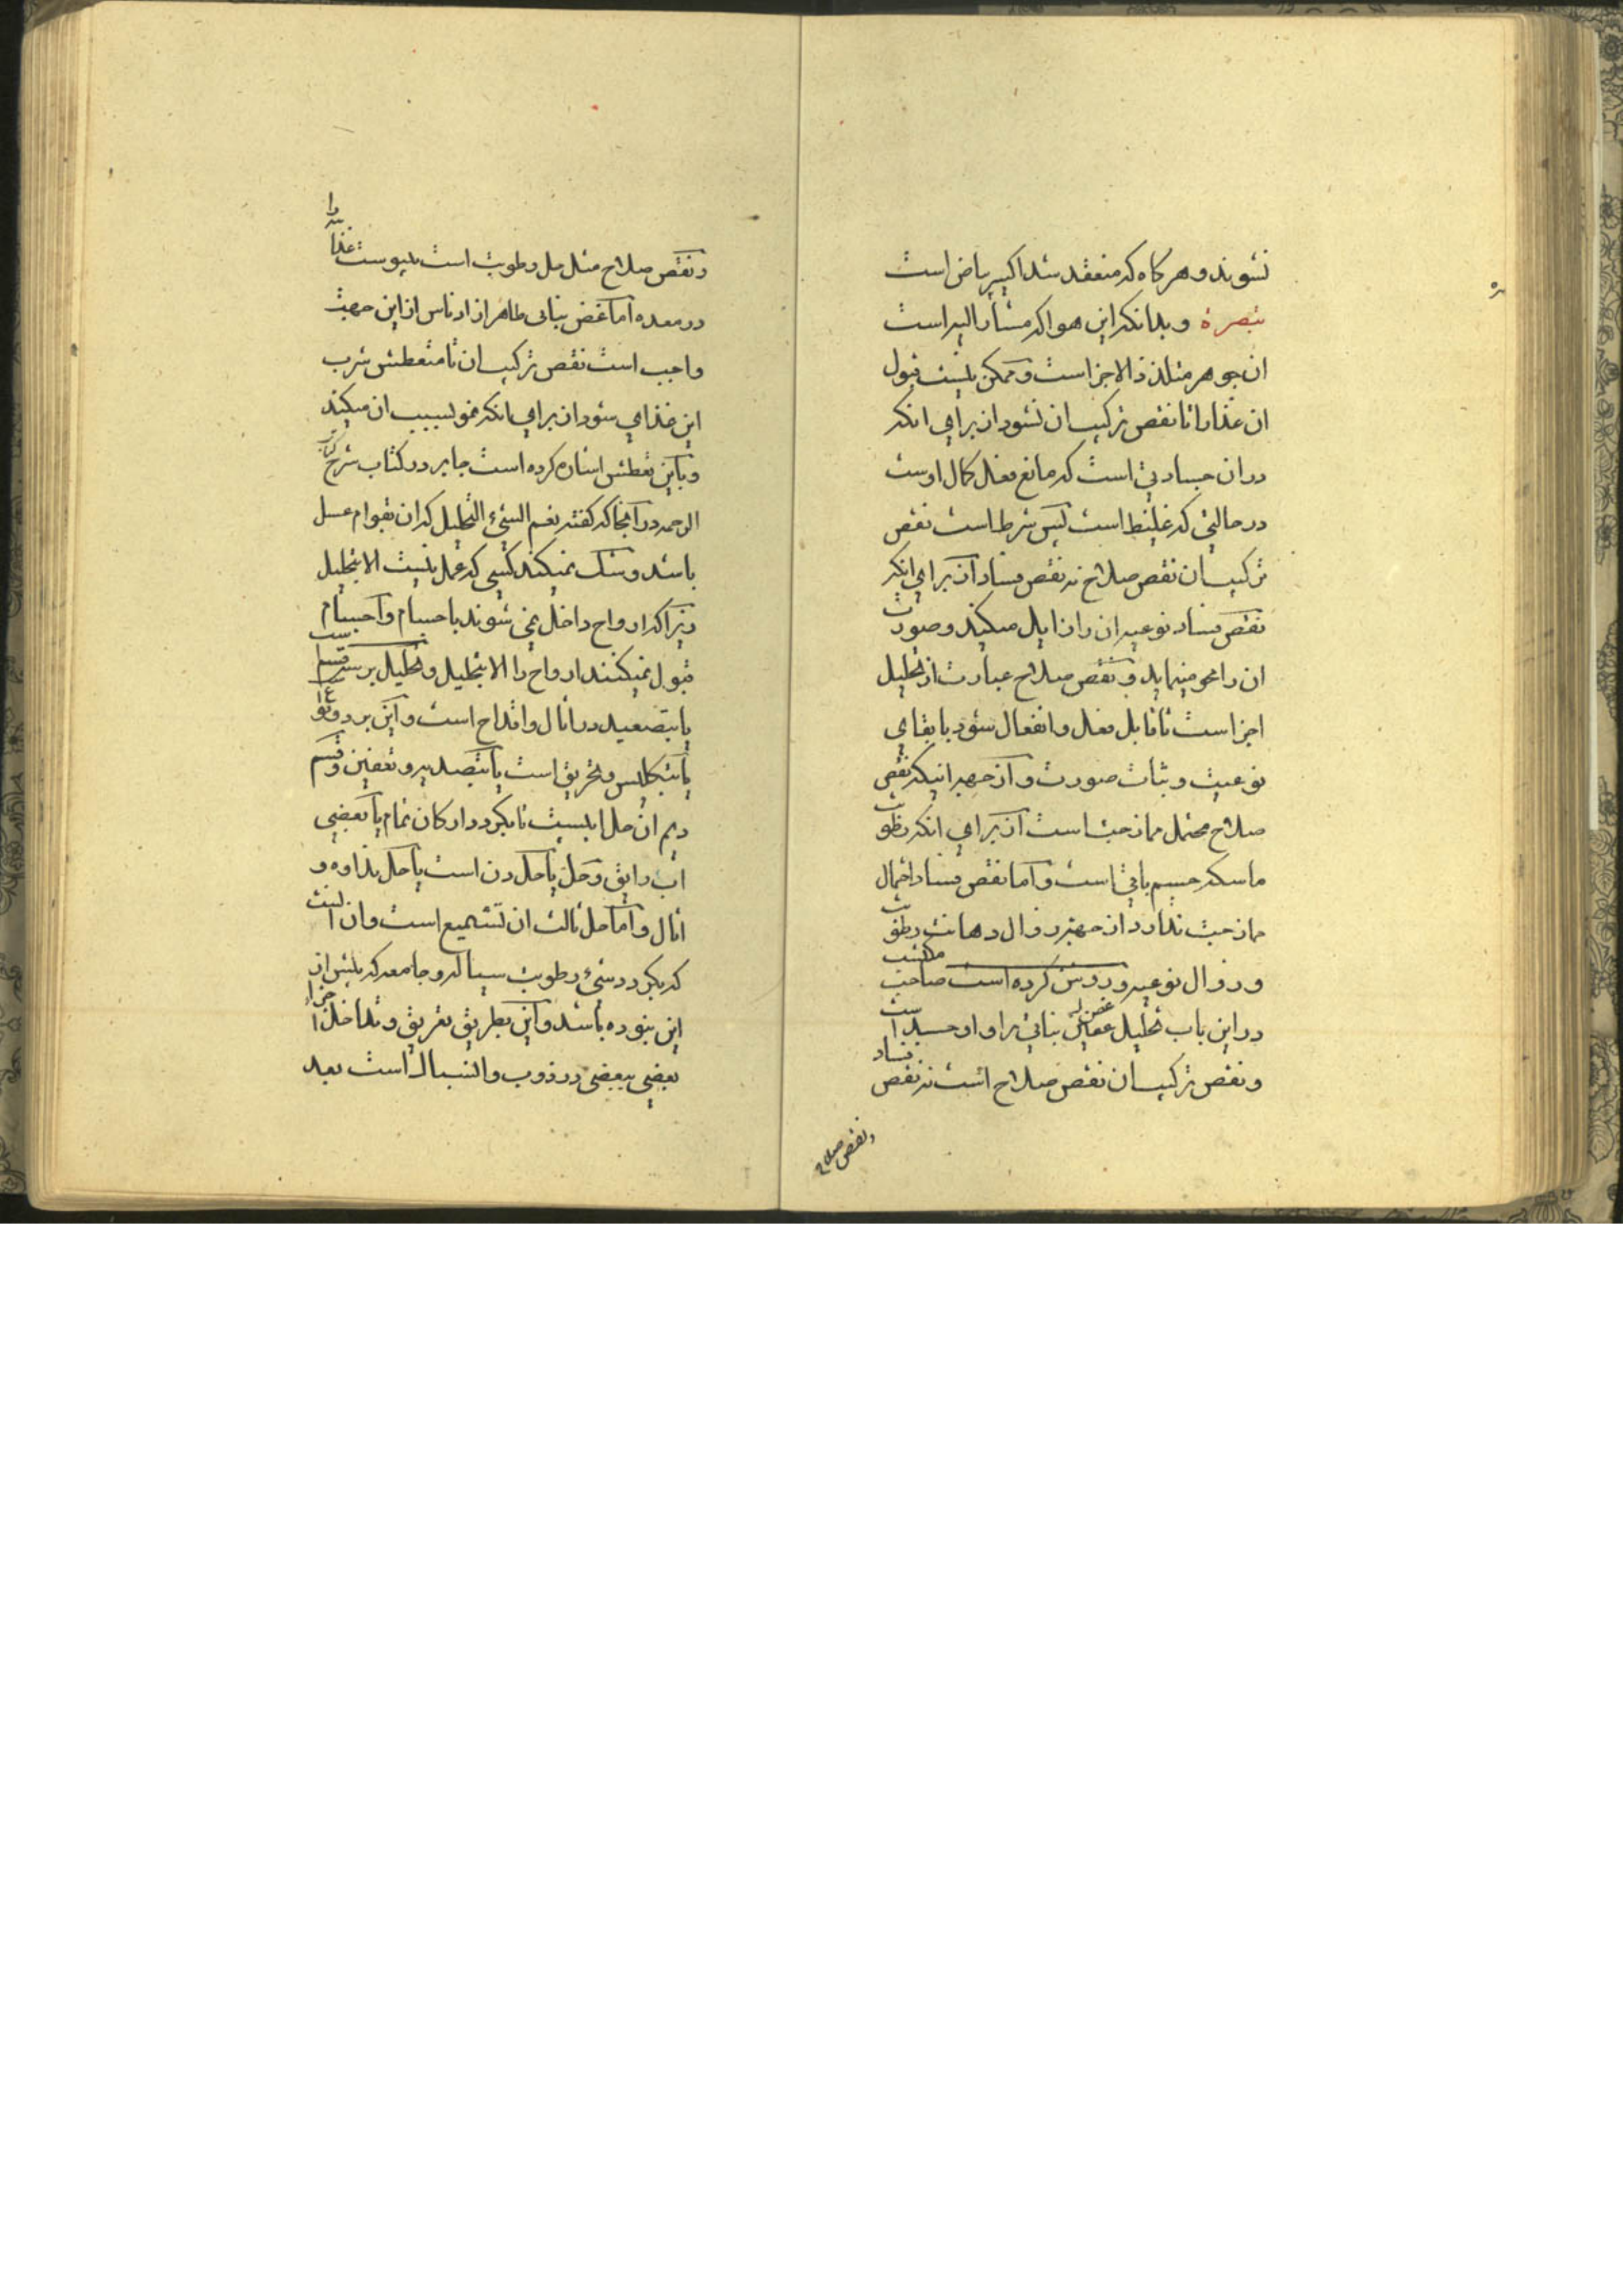 نشوند و هرکاه که منعقد شد اکسیر بیاض است
تبصرة و بدانکه این هوا که مشار الیه است
ان جوهر متلذذ الاجزاست و ممکن نیست قبول
ان غذا را تا نقص ترکیب ان نشود از برای انکه
در ان جسادتی است که مانع فعل کمال اوست
در حالتی که غلیظ است پس شرط است نقص
ترکیب ان نقص صلاح نه نقص فساد از برای انکه
نقص فساد نوعیه ان را زایل میکند و صورت
ان را محو مینماید و نقص صلاح عبارت از تحلیل
اجزاست تا قابل فعل و انفعال شود با بقای
نوعیت و ثبات صورت و از جهه اینکه نقص
صلاح محتمل ممازجت است از برای انکه رطوبت
ماسکه جسم باقی است و اما نقص فساد احتمال
ممازجت ندارد از جهت زوال دهانت رطوبت
و زوال نوعیه و روشن کرده است صاحب مکتسب
در این باب تحلیل غصن نباتی را و او حسد است
و نقص ترکیب ان نقص صلاح است نه نقص فساد
و نقص صلاح
و نقص صلاح مثل حل رطوبت است یبوست غذا را
در معده اما غصن نباتی طاهر از ادناس از این جهت
واجب است نقص ترکیب ان تا متعطش شرب
این غذای شود از برای انکه نمو بسبب ان میکند
و باین تعطش اشاره کرده است جابر در کتاب شرح کتاب
الرحمه در آنجا که گفته نعم الشیء التحلیل که ان بقوام عسل
باشد و شک نمیکند کسی که عمل نیست الا بتحلیل
زیرا که ارواح داخل نمی شوند باجسام و اجسام
قبول نمیکنند ارواح را الا بتحلیل و تحلیل بر سه قسم است
یا بتصعید در اثال و اقداح است و این بر دو نوع
یا بتکلیس و تحریق است یا بتصدیه و تعفین و قسم
دیم ان حل ابلیست تا بگردد ارکان تمام یا بعضی
اب رایق و حل یا حل دن است یا حل نداوه و
اثال و اما حل ثالث ان تشمیع است و ان انست
که بگردد شیء رطوبت سیاله و جامعه که پیش از
این نبوده باشد و این بطریق تفریق و تداخل اجزاء
بعضی ببعضی در ذوب و انسبال است بعد